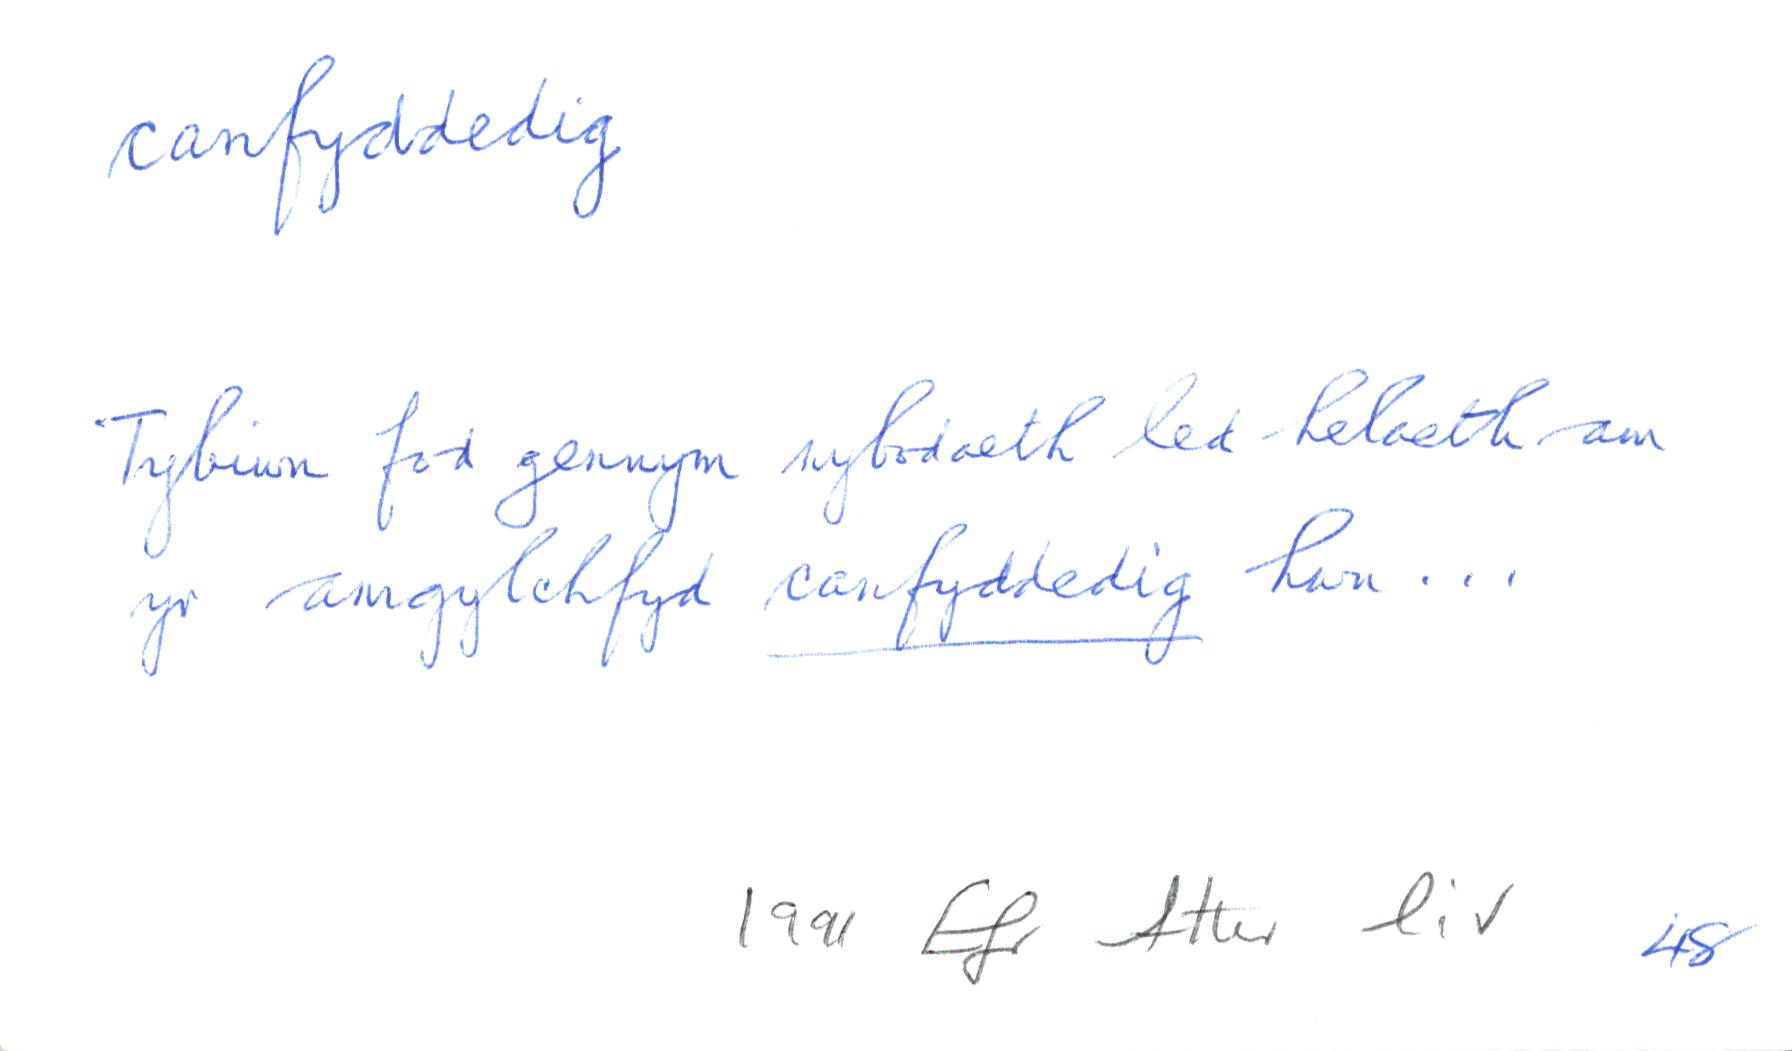 canfyddedig
Tybiwn fod gennym wybodaeth led helaeth am
yr amgylchfyd canfyddedig hwn...
1991 Efr Ather liv 48